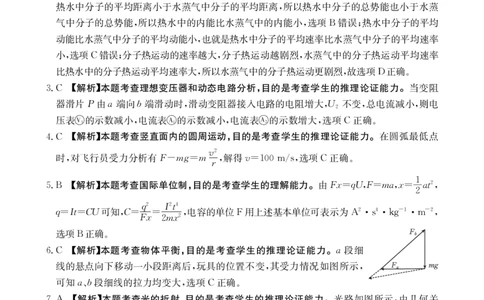 热水中分子的平均距离小于水蒸气中分子的平均距离,所以热水中分子的总势能也小于水蒸
气中分子的总势能,所以热水中的内能比水蒸气中的内能小,选项B错误;热水中分子的平均
动能比水蒸气中分子的平均动能小,也就是热水中分子的平均速率比水蒸气中分子的平均速率
小,选项C错误;分子热运动的速率越大,分子热运动越剧烈,水蒸气中的分子热运动平均速率
比热水中的分子热运动平均速率大,所以水蒸气中的分子热运动更剧烈,故选项D正确。
3. C 【解析】本题考查理想变压器和动态电路分析,目的是考查学生的推理论证能力。当变阻
器滑片 P 由 a 端向 b 端滑动时,滑动变阻器接入电路的电阻增大,U₂ 不变,总电流减小,则电
的示数减小,电流表
的示数减小,电流表
的示数增大,选项C正确。
4. C 【解析】本题考查竖直面内的圆周运动,目的是考查学生的推理论证能力。在圆弧最低点
时,对飞行员受力分析有 F−mg=m v²/r,解得 v=100 m/s,选项C正确。
5. B 【解析】本题考查国际单位制,目的是考查学生的理解能力。由 Fx=qU,F=ma,x=1/2 at²,
q=It=CU可知,C=q²/Fx=I²t⁴/2mx²,电容的单位F用上述基本单位可表示为 A²·s⁴·kg⁻¹·m⁻²,
选项B正确。
6. C 【解析】本题考查物体平衡,目的是考查学生的推理论证能力。a 段细
线的悬点向下移动一小段距离后,玩具的位置不变,其受力情况如图所示,
可知 a、b 段细线的拉力均变大,选项C正确。
Fb
Fa
mg
7. A 【解析】本题考查光的折射,目的是考查学生的推理论证能力。光路如图所示,由几何关